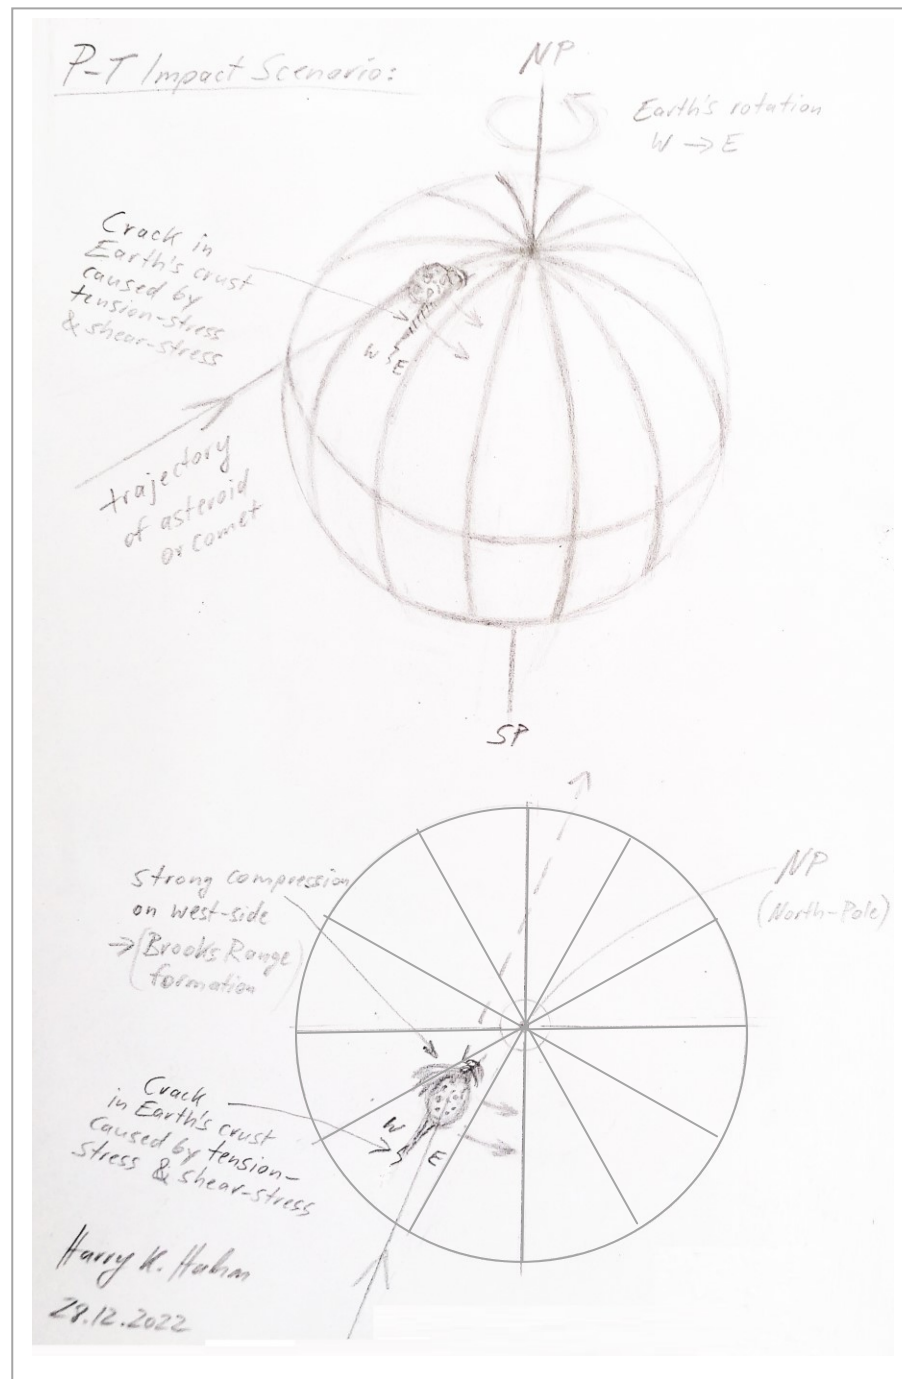 P-T Impact Scenario:
NP
Earth's rotation
W → E
Crack in
Earth's crust
caused by
tension-stress
& shear-stress
W
E
trajectory
of asteroid
or comet
SP
Strong compression
on west-side
→ (Brooks Range
formation)
NP
(North-Pole)
Crack
in Earth's crust
caused by tension-
stress & shear-stress
W
E
Harry K. Hahm
28.12.2022